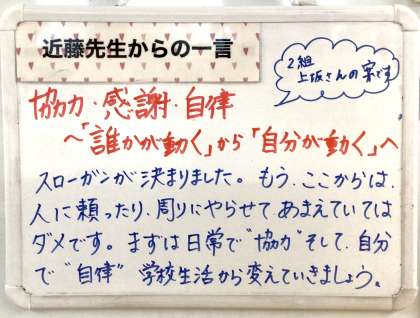 近藤先生からの一言
2組
上坂さんの案です
協力・感謝・自律
〜「誰かが動く」から「自分が動く」へ
スローガンが決まりました。もう、ここからは、
人に頼ったり、周りにやらせて、あまえていては
ダメです。まずは日常で"協力"そして、自分
で"自律"学校生活から変えていきましょう。